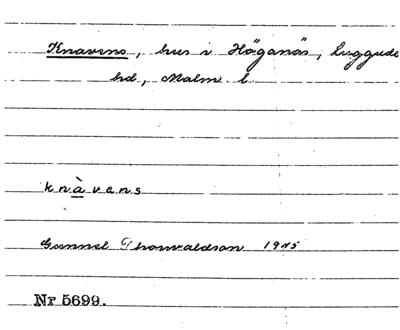 Knavens, hus i Höganäs, Luggude
hd, Malm. l.
knàvans
Gunnel Thorvaldson 1945
Nr 5699.